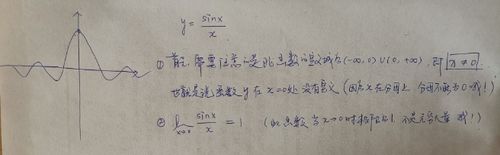 y = sinx/x
① 首先,需要注意的是此函数的定义域为(-∞,0)∪(0,+∞),即 x≠0
也就是说函数 y 在 x=0处没有意义(因为 x在分母上 分母不能为0哦!)
② lim x→0 sinx/x = 1 (此函数当x→0时极限为1 不是无穷大量哦!)